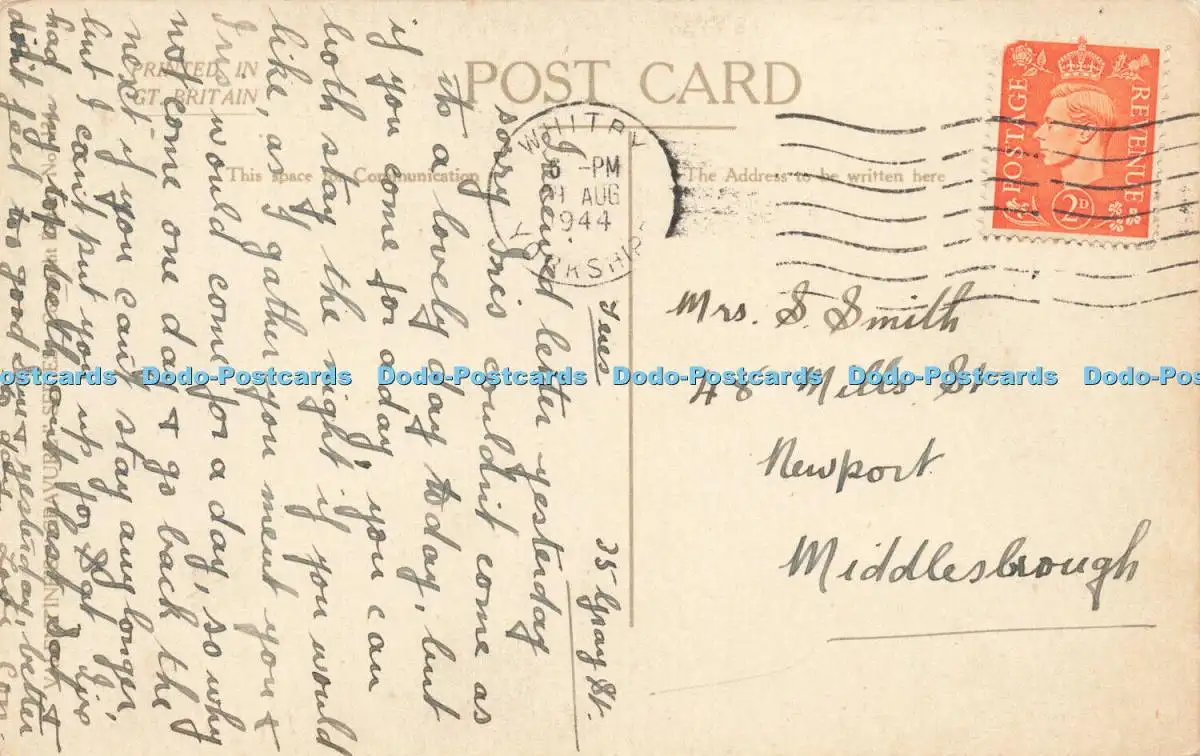 PRINTED IN
GT. BRITAIN
POST CARD
This space for Communication
The Address to be written here
WHITBY
6 - PM
AUG
1944
YORKSHIRE
POSTAGE
REVENUE
2D
35 Gray St.
Tues
I received letter yesterday
sorry Inis couldn't come as
its a lovely day today, but
if you come for a day, you can
both stay the night if you would
like, as I gather you ment you &
would come for a day, so why
not come one day & go back the
next if you cant stay any longer,
but I can't put you up for Sat
had my top teeth out last Sat &
didn't feel too good Sun & yesterday, better
to day. Love Con.
Mrs. S. Smith
48 Mills St
Newport
Middlesbrough
Dodo-Postcards Dodo-Postcards Dodo-Postcards Dodo-Postcards Dodo-Postcards